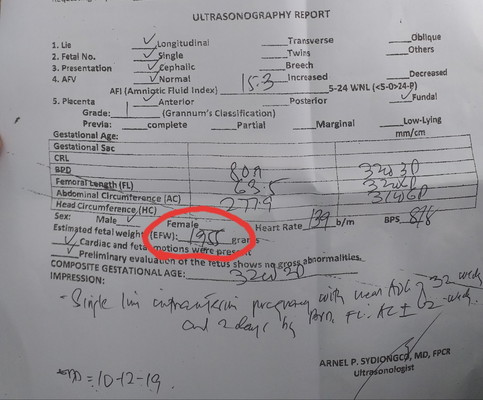 ULTRASONOGRAPHY REPORT
1. Lie ✓ Longitudinal ____Transverse ____Oblique
2. Fetal No. ✓ Single ____Twins ____Others
3. Presentation ✓ Cephalic ____Breech
4. AFV ✓ Normal ____Increased ____Decreased
AFI (Amniotic Fluid Index) 15.3 5-24 WNL (<5-0>24-P)
5. Placenta ✓ Anterior ____Posterior ✓ Fundal
Grade: 1 (Grannum's Classification)
Previa: ____complete ____Partial ____Marginal ____Low-Lying
Gestational Age: mm/cm
Gestational Sac
CRL
BPD 80.1 32W3D
Femoral Length (FL) 63.5
Abdominal Circumference (AC) 277.9
Head Circumference (HC)
Sex: Male ✓ Female Heart Rate 139 b/m BPS 8/8
Estimated fetal weight (EFW): 1955 grams
✓ Cardiac and fetal motions were present
✓ Preliminary evaluation of the fetus shows no gross abnormalities.
COMPOSITE GESTATIONAL AGE: 32W2D
IMPRESSION:
- Single live intrauterine pregnancy with mean AOG 32 weeks
and 2 days by BPD, FL, AC ± 2 weeks.
ARNEL P. SYDIONGCO, MD, FPCR
Ultrasonologist
= 10-12-19.